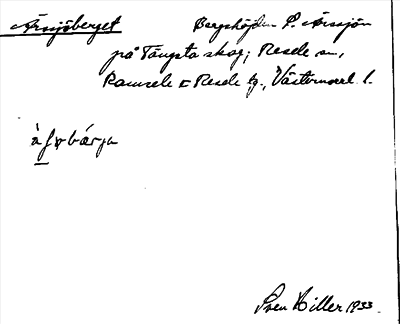 Årsjöberget Bergshöjden S. Årssjön
på Tängsta skog; Resele sn,
Ramsele o Resele tg., Västernorrl. l.
Sven Hiller 1933